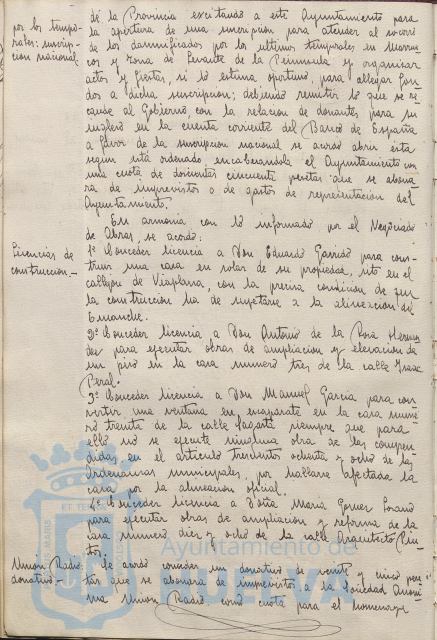 de la Provincia excitando a este Ayuntamiento para
por los tempo-
rales: suscrip-
ción nacional
la apertura de una suscripción para atender al socorro
de los damnificados por los ultimos temporales en Marrue-
cos y zona de Levante de la Peninsula y organizar
actos y fiestas, si lo estima oportuno, para allegar fon-
dos a dicha suscripcion; debiendo remitir lo que se re-
caude al Gobierno, con la relacion de donantes, para su
ingreso en la cuenta corriente del Banco de España
a favor de la suscripcion nacional se acordó abrir esta
segun está ordenado, encabezandola el Ayuntamiento con
una cuota de doscientas cincuenta pesetas que se abona-
rá de imprevistos o de gastos de representación del
Ayuntamiento.
En armonia con lo informado por el Negociado
de Obras, se acordó:
Licencias de
construcción.-
1º Conceder licencia a Don Eduardo Garrido para cons-
truir una casa en solar de su propiedad, sito en el
callejon de Viaplana, con la precisa condicion de que
la construccion ha de sujetarse a la alineacion del
Ensanche.
2º Conceder licencia a Don Antonio de la Rosa Hernan-
dez para ejecutar obras de ampliacion y elevacion de
un piso en la casa numero tres de la calle Isaac
Peral.
3º Conceder licencia a Don Manuel Garcia para con-
vertir una ventana en escaparate en la casa nume-
ro treinta de la calle Sagasta siempre que para
ello no se ejecute ninguna obra de las compren-
didas en el articulo trescientos ochenta y ocho de las
Ordenanzas municipales, por hallarse afectada la
casa por la alineacion oficial.
4º Conceder licencia a Doña Maria Gomez Lozano
para ejecutar obras de ampliacion y reforma de la
casa numero diez y ocho de la calle Arquitecto Pin-
to.
Ayuntamiento de
HUELVA
Union Radio:
donativo
Se acordó conceder un donativo de veinte y cinco pese-
tas que se abonará de imprevistos a la Sociedad Anoni-
ma Union Radio como cuota para el homenaje